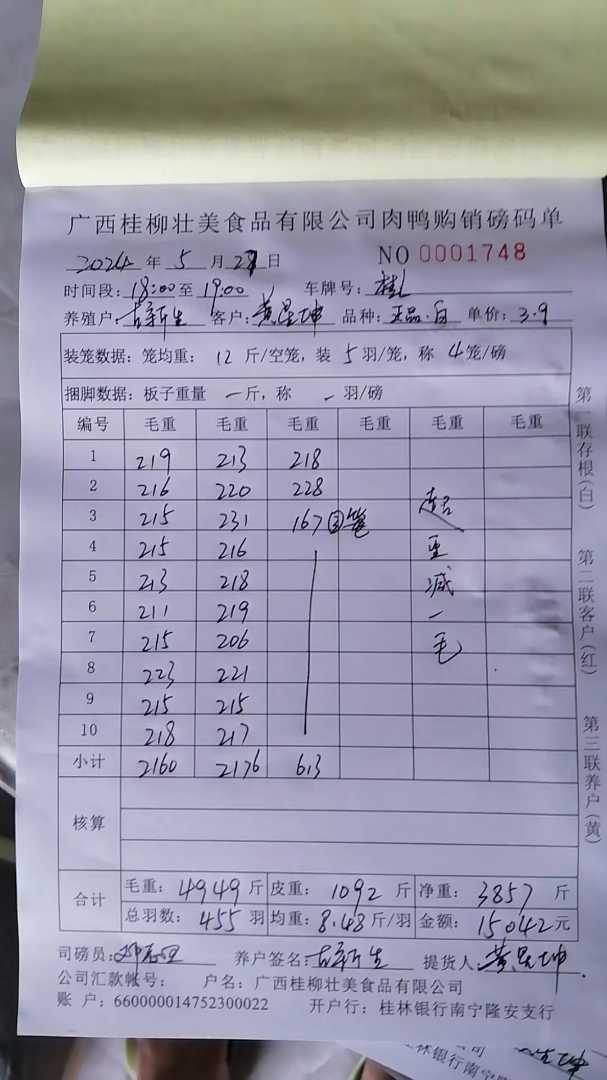 广西桂柳壮美食品有限公司肉鸭购销磅码单
2024 年 5 月 27 日 NO 0001748
时间段: 18:00 至 19:00 车牌号:
养殖户: 古新生 客户: 黄星坤 品种: 正品.白 单价: 3.9
装笼数据: 笼均重: 12 斤/空笼, 装 5 羽/笼, 称 4 笼/磅
捆脚数据: 板子重量 一 斤, 称 - 羽/磅
编号 毛重 毛重 毛重 毛重 毛重 毛重
1 219 213 218
2 216 220 228
3 215 231 167 超
4 215 216 重
5 213 218 减
6 211 219 一
7 215 206 毛
8 223 221
9 215 215
10 218 217
小计 2160 2176 613
核算
合计 毛重: 4949 斤 皮重: 1092 斤 净重: 3857 斤
总羽数: 455 羽 均重: 8.48 斤/羽 金额: 15042 元
司磅员: 养户签名: 古新生 提货人: 黄星坤
公司汇款帐号: 户名: 广西桂柳壮美食品有限公司
账 户: 660000014752300022 开户行: 桂林银行南宁隆安支行
第一联存根(白)
第二联客户(红)
第三联养户(黄)
公司
林银行南宁隆